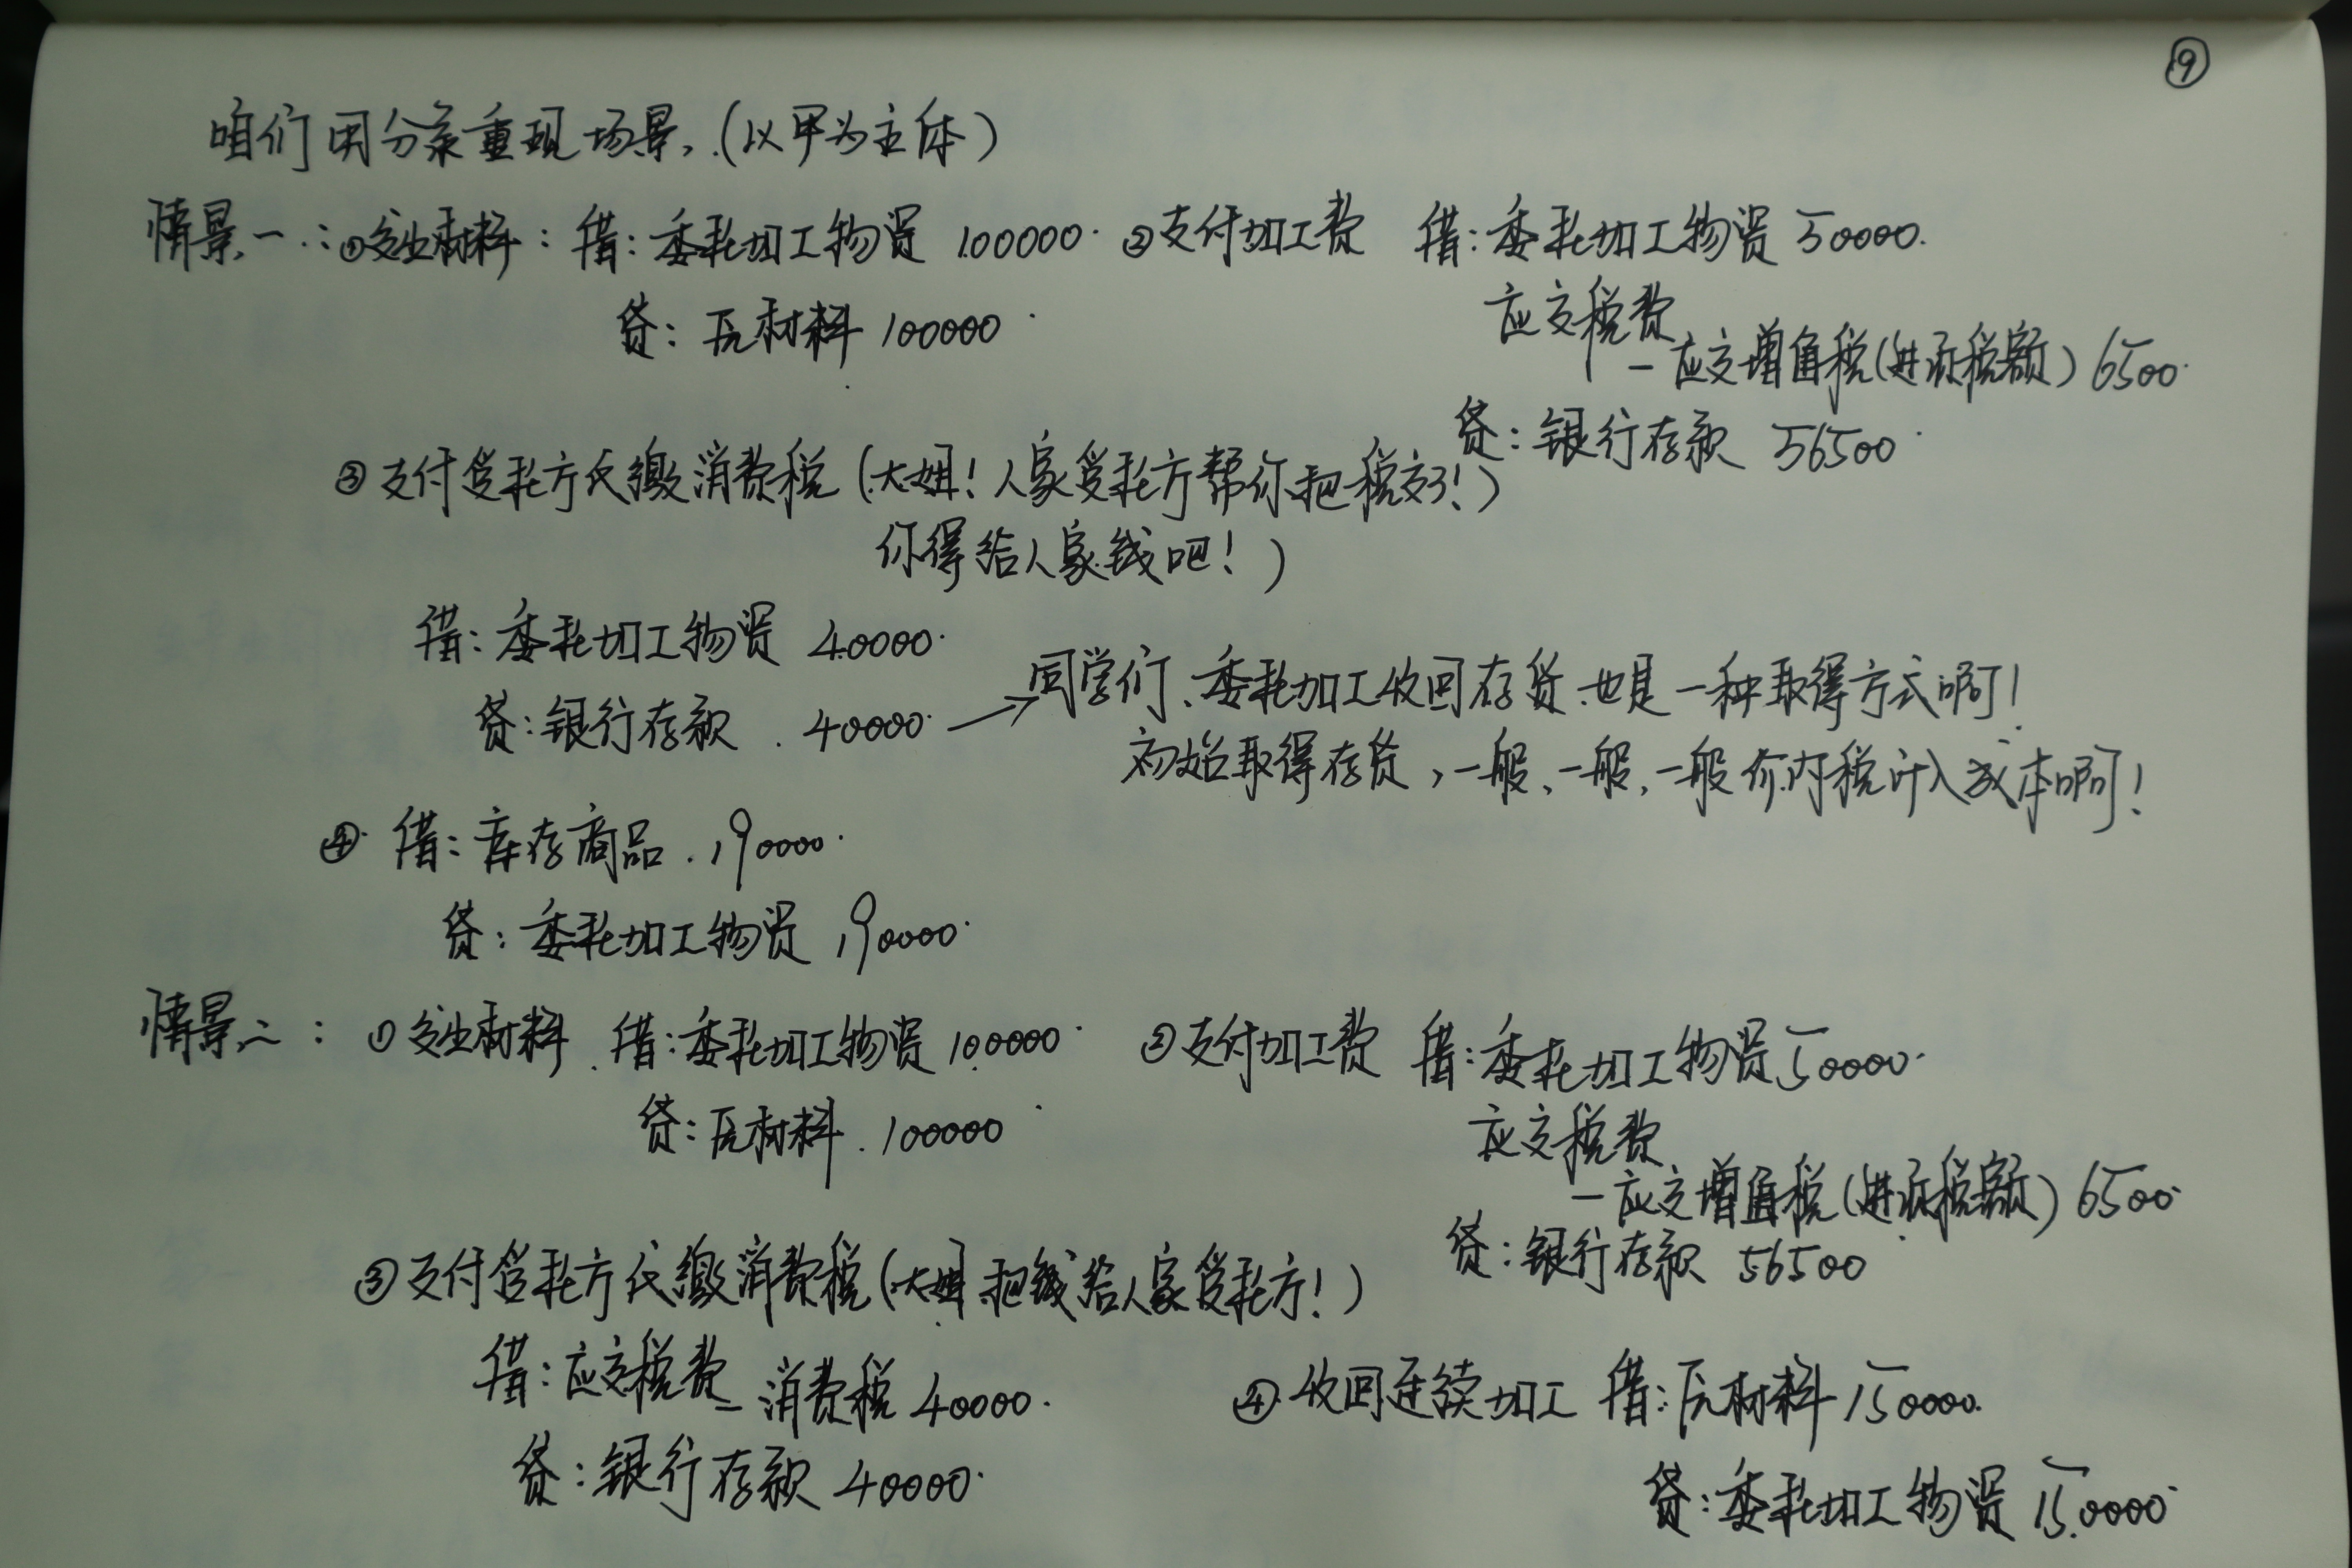 ⑨
咱们用分录重现场景.(以甲为主体)
情景一:①发出材料:借:委托加工物资 100000 ②支付加工费 借:委托加工物资 50000
贷:原材料 100000
应交税费
-应交增值税(进项税额) 6500
贷:银行存款 56500
③支付受托方代缴消费税(大姐!人家受托方帮你把税交了!)
你得给人家钱吧!)
借:委托加工物资 40000
贷:银行存款 40000 → 同学们、委托加工收回存货也是一种取得方式啊!
初始取得存货,一般、一般,一般价内税计入成本啊!
④ 借:库存商品 190000
贷:委托加工物资 190000
情景二: ①发出材料 借:委托加工物资 100000 ②支付加工费 借:委托加工物资 50000
贷:原材料 100000
应交税费
-应交增值税(进项税额) 6500
贷:银行存款 56500
③支付受托方代缴消费税(大姐.把钱给人家受托方!)
借:应交税费-消费税 40000
④收回连续加工 借:原材料 150000
贷:银行存款 40000
贷:委托加工物资 150000